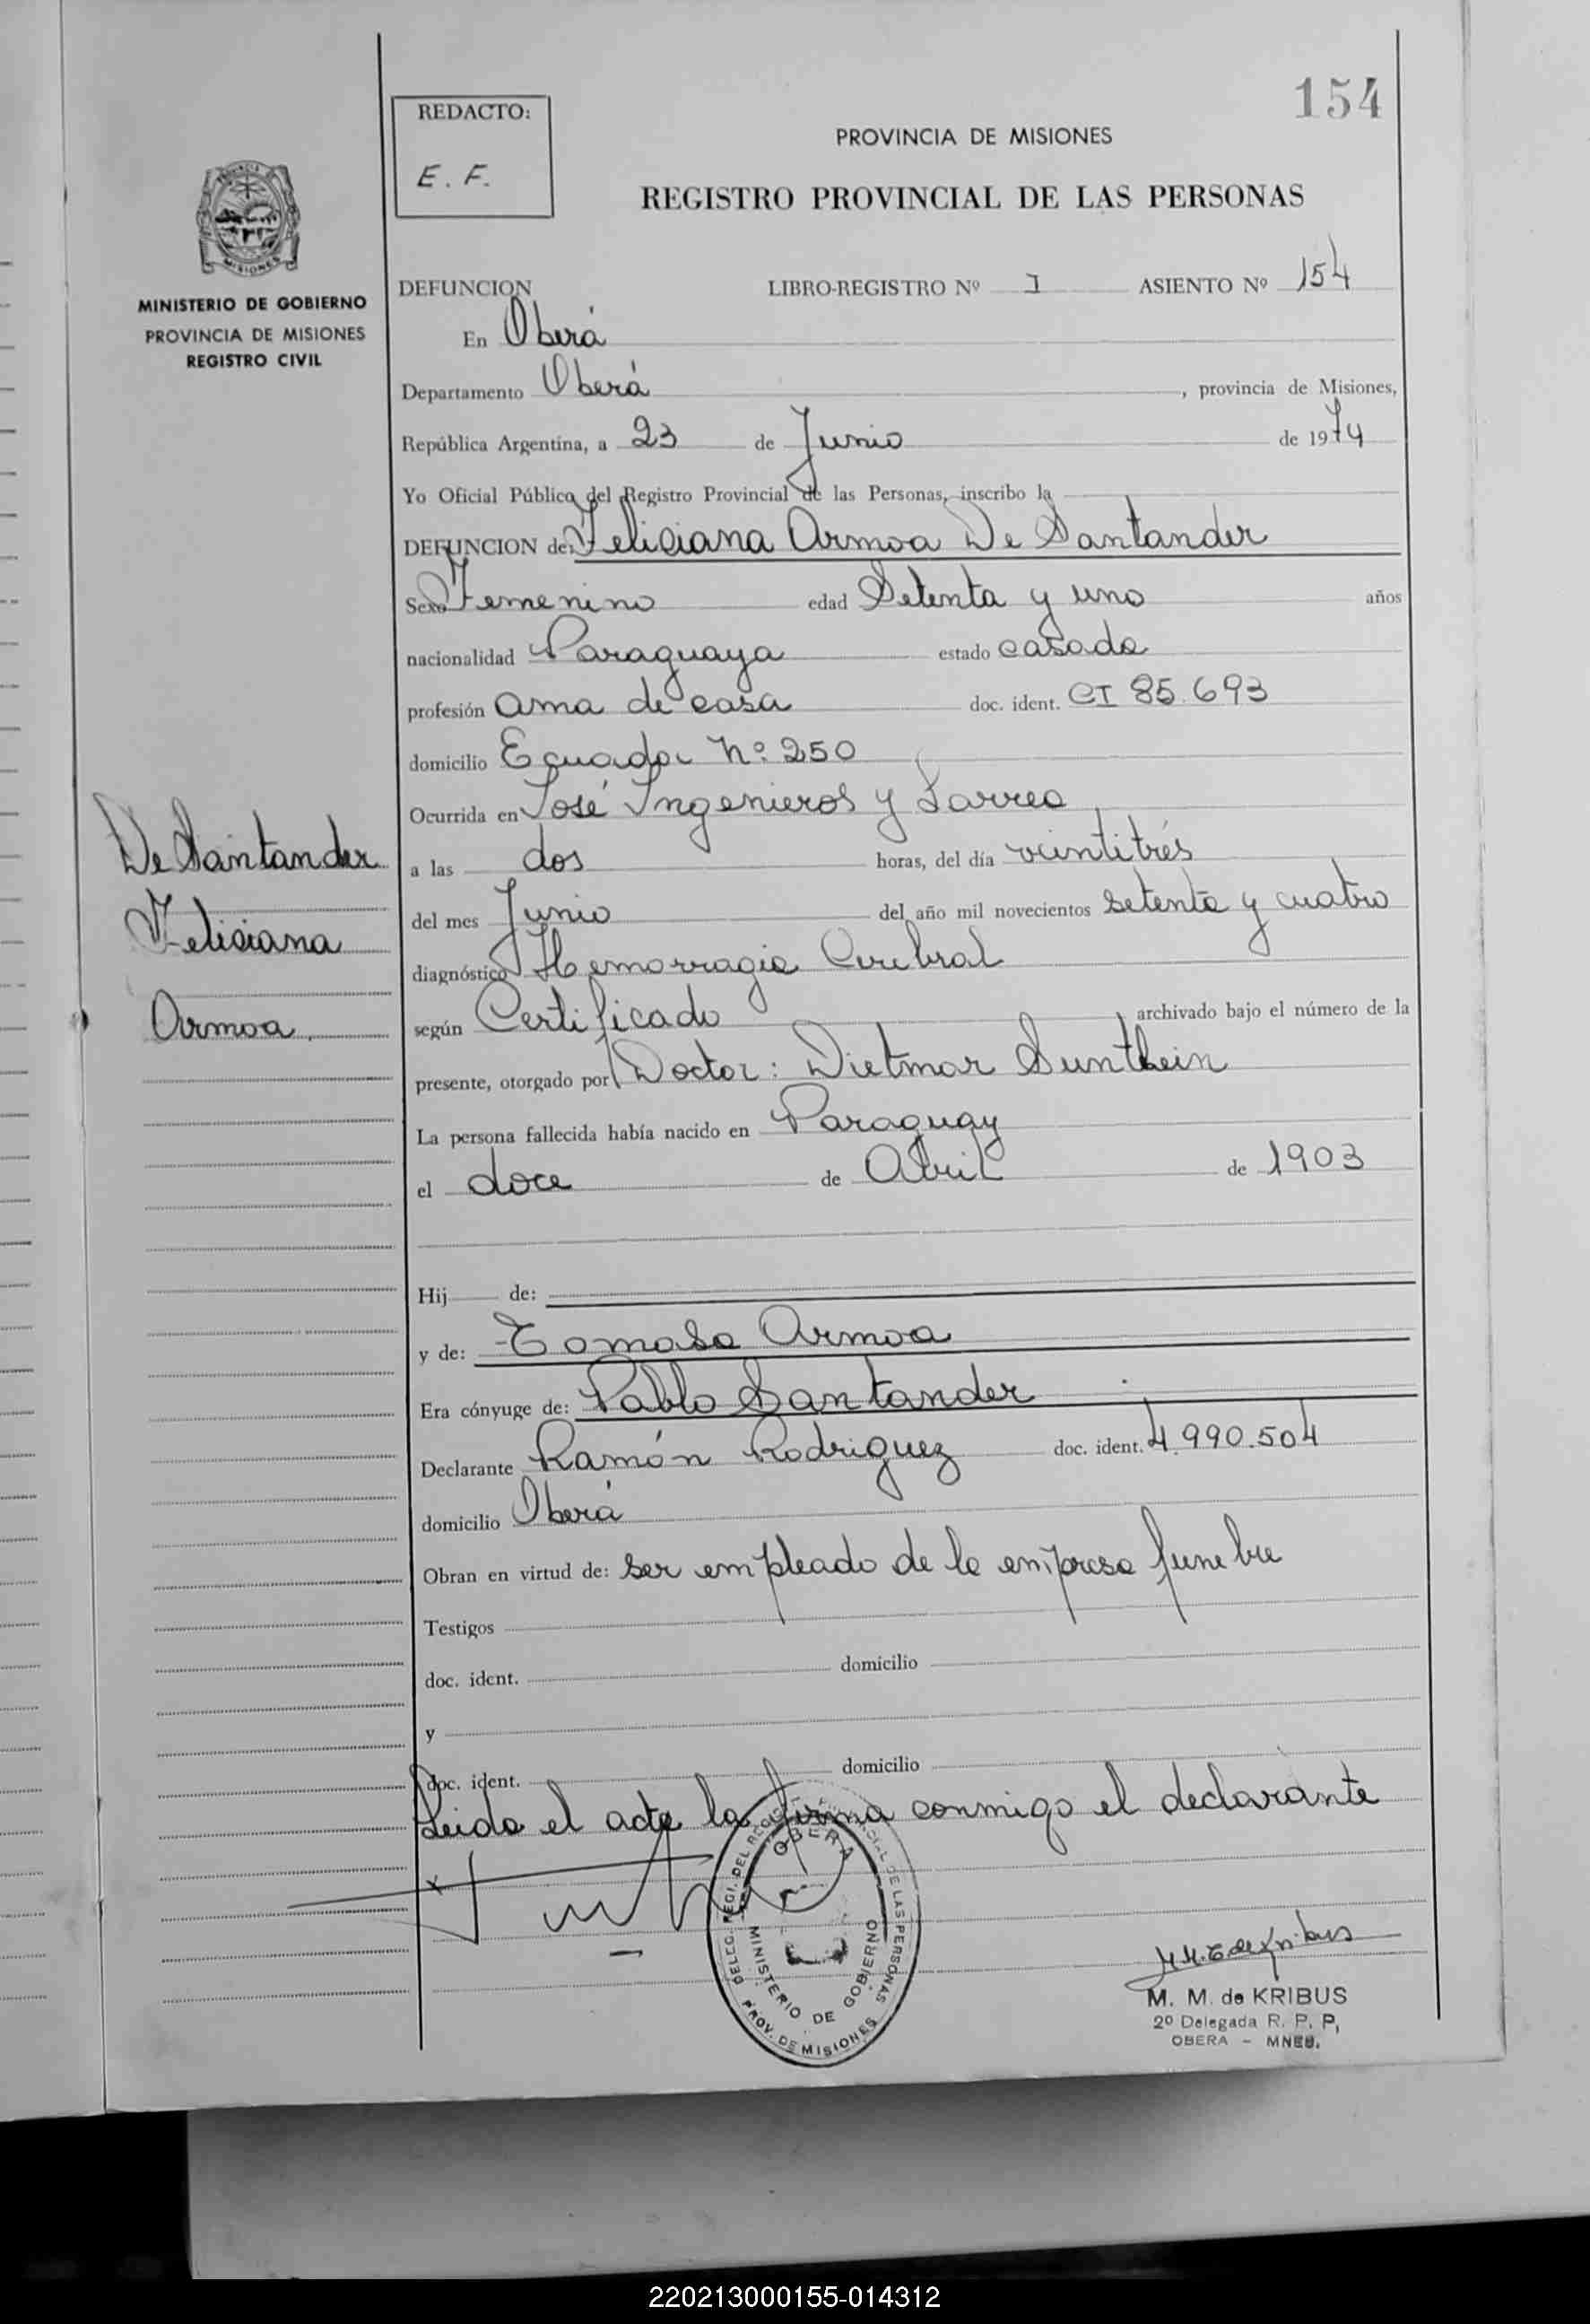 154
REDACTO:
E. F.
PROVINCIA DE MISIONES
REGISTRO PROVINCIAL DE LAS PERSONAS
MISIONES
MINISTERIO DE GOBIERNO
PROVINCIA DE MISIONES
REGISTRO CIVIL
DEFUNCION LIBRO-REGISTRO Nº I ASIENTO Nº 154
En Oberá
Departamento Oberá, provincia de Misiones,
República Argentina, a 23 de Junio de 1974
Yo Oficial Público del Registro Provincial de las Personas, inscribo la
DEFUNCION de: Feliciana Armoa De Santander
Sexo Femenino edad Setenta y uno años
nacionalidad Paraguaya estado casada
profesión ama de casa doc. ident. CI 85.693
domicilio Ecuador Nº 250
Ocurrida en José Ingenieros y Larrea
a las dos horas, del día veintitrés
del mes Junio del año mil novecientos setenta y cuatro
diagnóstico Hemorragia Cerebral
según Certificado archivado bajo el número de la
presente, otorgado por Doctor: Dietmar Sunthein
La persona fallecida había nacido en Paraguay
el doce de Abril de 1903
Hij de:
y de: Tomasa Armoa
Era cónyuge de: Pablo Santander
Declarante Ramón Rodriguez doc. ident. 4.990.504
domicilio Oberá
Obran en virtud de: ser empleado de la empresa funebre
Testigos
doc. ident. domicilio
y
doc. ident. domicilio
Leida el acta la firma conmigo el declarante
De Santander
Feliciana
Armoa
DELEG. REGI. DEL REGIST. PROVINCIAL DE LAS PERSONAS
OBERA
MINISTERIO DE GOBIERNO
PROV. DE MISIONES
M. M. de KRIBUS
2º Delegada R. P. P.
OBERA - MNES.
220213000155-014312